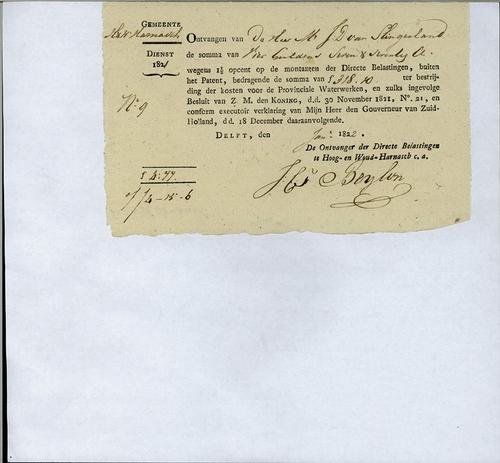 GEMEENTE
H & W Harnasch
DIENST
1821
Nº 9
Ontvangen van De Heer Mr J D van Slingeland
de somma van Vier Guldens Seven & Seventig Ct
wegens 1½ opcent op de montanten der Directe Belastingen, buiten
het Patent, bedragende de somma van f 318.10 ter bestrij-
ding der kosten voor de Provinciale Waterwerken, en zulks ingevolge
Besluit van Z. M. den KONING, d.d. 30 November 1821, Nº. 21, en
conform executoir verklaring van Mijn Heer den Gouverneur van Zuid-
Holland, d d. 18 December daaraanvolgende.
DELFT, den Jany 1822.
De Ontvanger der Directe Belastingen
te Hoog- en Woud-Harnasch c. a.
f 4.77
of f 4-15-6